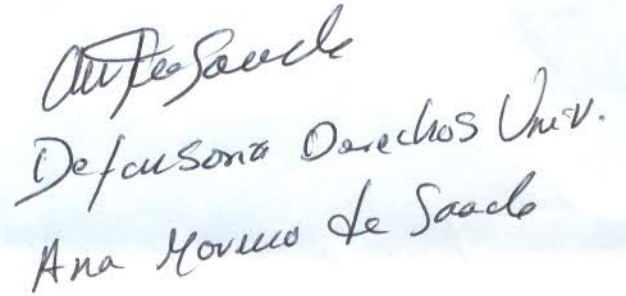 Defensoria Derechos Univ.
Ana Moreno de Saade